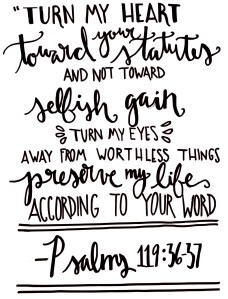 "TURN MY HEART
toward your statutes
AND NOT TOWARD
selfish gain
TURN MY EYES
AWAY FROM WORTHLESS THINGS
preserve my life
ACCORDING TO YOUR WORD
-Psalms 119:36-37